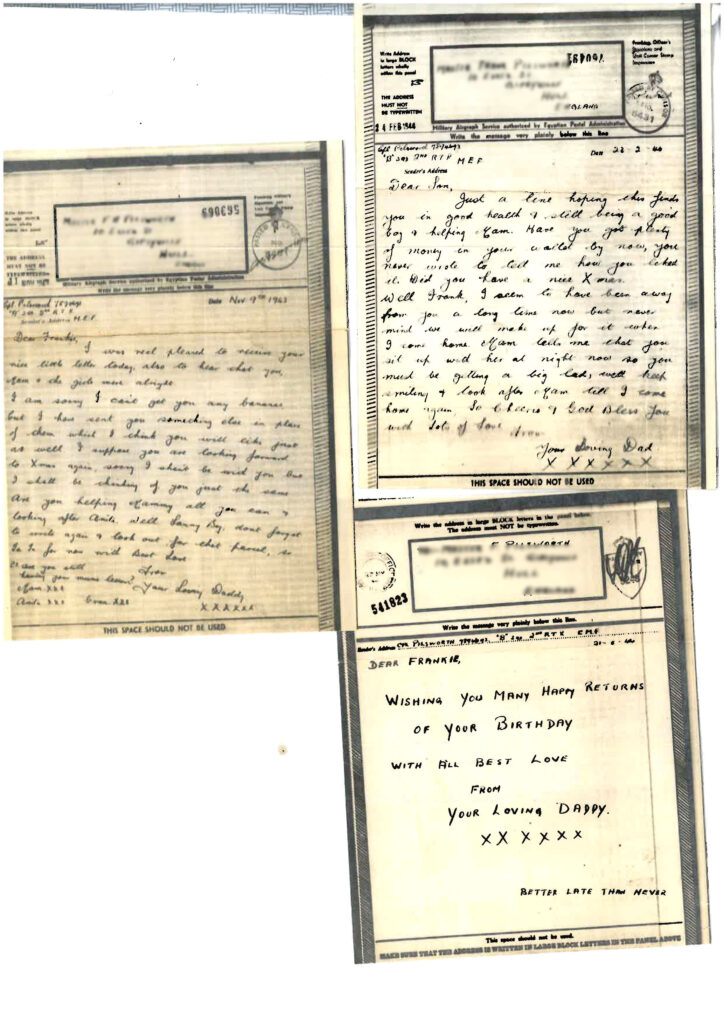 MASTER F H PILSWORTH
HULL
690695
Military Airgraph Service authorized by Egyptian Postal Administration
Write the message very plainly below this line
Cpl Pilsworth
"B" Sqn 2nd RTR
Sender's Address M.E.F
Date Nov 9th 1943
Dear Frankie,
I was real pleased to receive your
nice little letter today, also to hear that you,
Mam & the girls were alright
I am sorry I can't get you any bananas
but I have sent you something else in place
of them which I think you will like just
as well I suppose you are looking forward
to Xmas again, sorry I shan't be with you but
I shall be thinking of you just the same
Are you helping Mammy all you can &
looking after Anita. Well Sonny Boy, dont forget
to write again & look out for that parcel, so
Ta Ta for now with Best Love
From
Your Loving Daddy
Mam xxx
Anita xxx
X X X X X X
THIS SPACE SHOULD NOT BE USED
Write Address
in large BLOCK
letters wholly
within this panel
THE ADDRESS
MUST NOT
BE TYPEWRITTEN
24 FEB 1944
MASTER FRANK PILSWORTH
HULL
ENGLAND
760491
Military Airgraph Service authorized by Egyptian Postal Administration
Write the message very plainly below this line
Cpl Pilsworth
"B" Sqn 2nd RTR M E F
Sender's Address
Date 22-2-44
Dear Son,
Just a line hoping this finds
you in good health & still being a good
boy & helping Mam. Have you got plenty
of money in your wallet by now, you
never wrote to tell me how you liked
it. Did you have a nice Xmas.
Well Frank, I seem to have been away
from you a long time now but never
mind we will make up for it when
I come home Mam tells me that you
sit up with her at night now so you
must be getting a big lad, well keep
smiling & look after Mam till I come
home again. So Cheerio & God Bless You
with lots of Love
From
Your Loving Dad
X X X X X X
THIS SPACE SHOULD NOT BE USED
Write the address in large BLOCK letters in the panel below.
The address MUST NOT be typewritten.
F PILSWORTH
HULL
541823
Write the message very plainly below this line.
Sender's Address CPL PILSWORTH "B" SQN 2ND RTR CMF
DEAR FRANKIE,
WISHING YOU MANY HAPPY RETURNS
OF YOUR BIRTHDAY
WITH ALL BEST LOVE
FROM
YOUR LOVING DADDY.
X X X X X X
BETTER LATE THAN NEVER
This space should not be used.
MAKE SURE THAT THE ADDRESS IS WRITTEN IN LARGE BLOCK LETTERS IN THE PANEL ABOVE